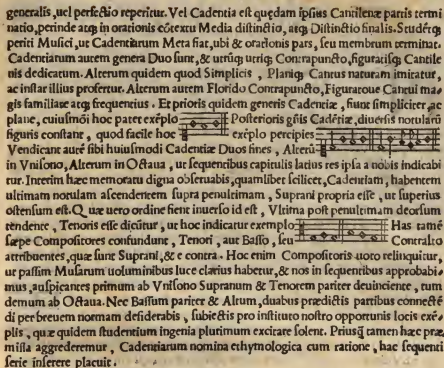 generalis, uel perfectio reperitur. Vel Cadentia est quędam ipsius Cantilenæ partis termi
natio, perinde atq; in orationis cõtextu Media distinctio, atq; Distinctio finalis. Studẽtq;
periti Musici, ut Cadentiarum Meta fiat, ubi & orationis pars, seu membrum terminat.
Cadentiarum autem genera Duo sunt, & utrũq; utriq; Contrapuncto, figuratisq; Cantile
nis dedicatum. Alterum quidem quod Simplicis, Planiq; Cantus naturam imitatur,
ac instar illius profertur. Alterum autem Florido Contrapuncto, Figuratoue Cantui ma⸗
gis familiare atq; frequentius. Et prioris quidem generis Cadentiæ, sunt simpliciter, ac
plane, cuiusmõi hoc patet exẽplo Posterioris gñis Cadẽtiæ, diuersis notularũ
figuris constant, quod facile hoc exẽplo percipies
Vendicant autẽ sibi huiusmodi Cadentiæ Duos fines, Alterũ
in Vnisono, Alterum in Octaua, ut sequentibus capitulis latius res ipsa a nobis indicabi
tur. Interim hæc memoratu digna obseruabis, quamlibet scilicet, Cadentiam, habentem
ultimam notulam ascendentem supra penultimam, Suprani propria esse, ut superius
ostensum est. Quæ uero ordine fient inuerso id est, Vltima post penultimam deorsum
tendente, Tenoris esse dicitur, ut hoc indicatur exemplo Has tamẽ
sæpe Compositores confundunt, Tenori, aut Basso, seu Contralto
attribuentes, quæ sunt Suprani, & e contra. Hoc enim Compositoris uoto relinquitur,
ut passim Musarum uoluminibus luce clarius habetur, & nos in sequentibus approbabi⸗
mus, auspicantes primum ab Vnisono Supranum & Tenorem pariter deuinciente, tum
demum ab Octaua. Nec Bassum pariter & Altum, duabus prædictis partibus connecté
di per breuem normam desiderabis, subiectis pro instituto nostro opportunis locis exẽ⸗
plis, quæ quidem studentium ingenia plurimum excitare solent. Priusq̃ tamen hæc præ
missa aggrederemur, Cadentiarum nomina ethymologica cum ratione, hac sequenti
serie inserere placuit.